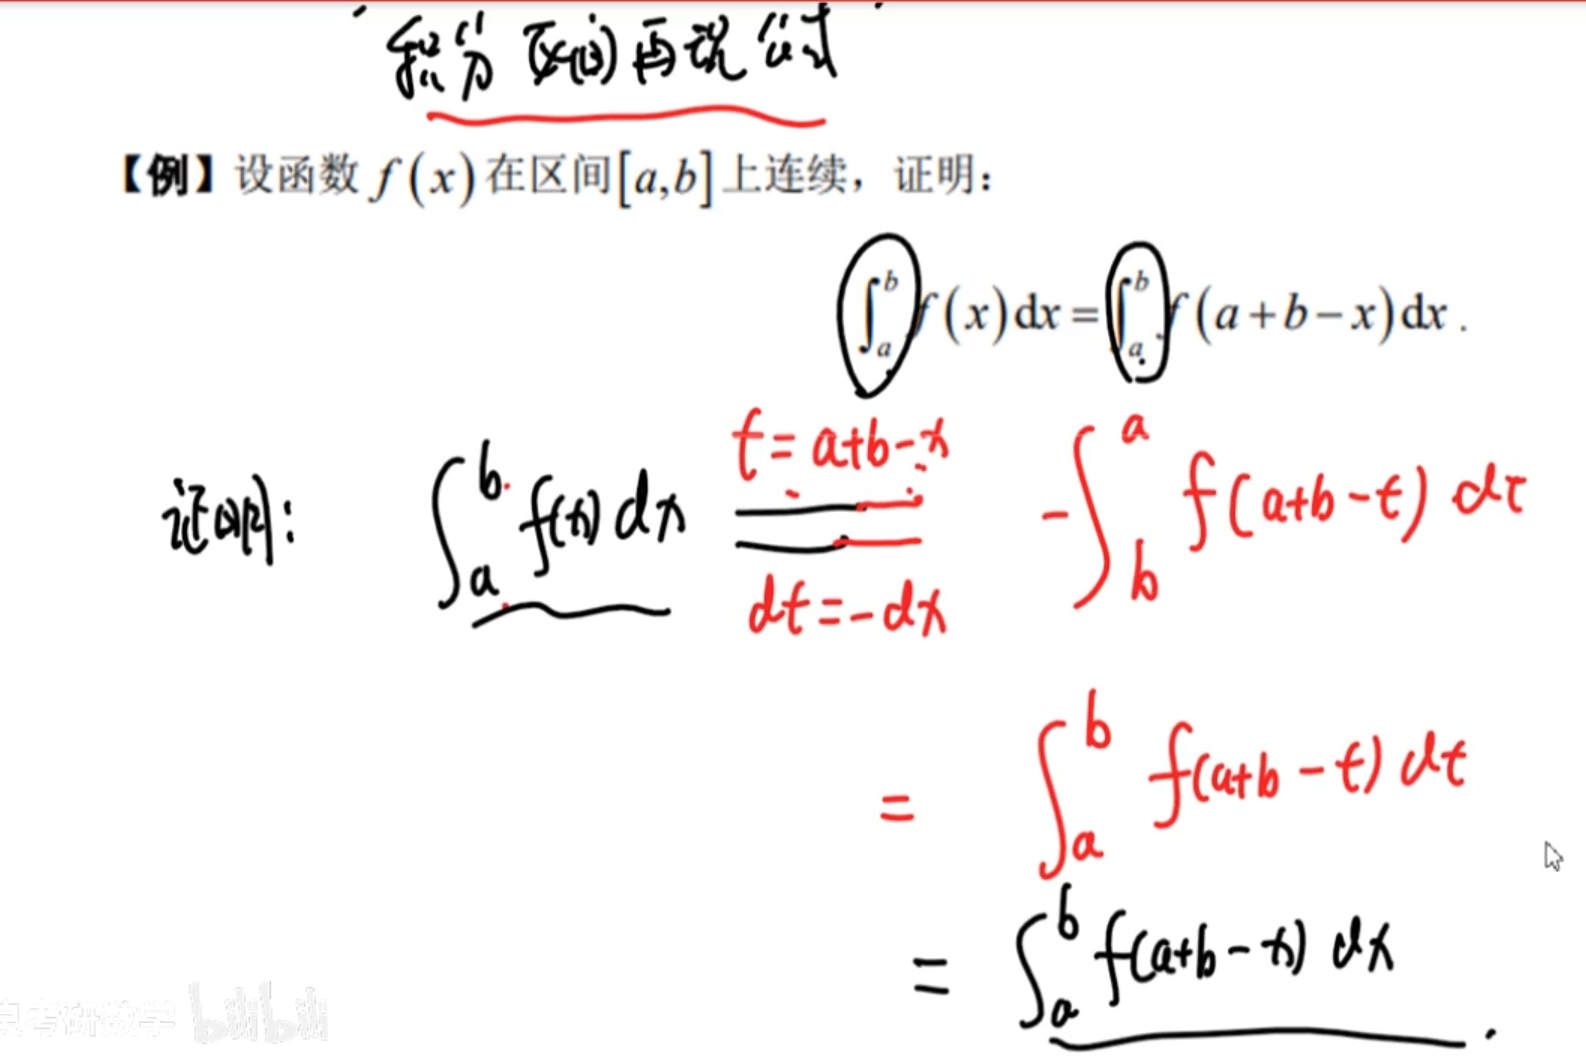 积分区间再现公式
【例】设函数 f(x) 在区间[a,b]上连续，证明：
∫_a^b f(x)dx = ∫_a^b f(a+b−x)dx .
证明: ∫_a^b f(x) dx =(t=a+b-x, dt=-dx) -∫_b^a f(a+b-t) dt
= ∫_a^b f(a+b-t) dt
= ∫_a^b f(a+b-x) dx .
考研数学 bilibili